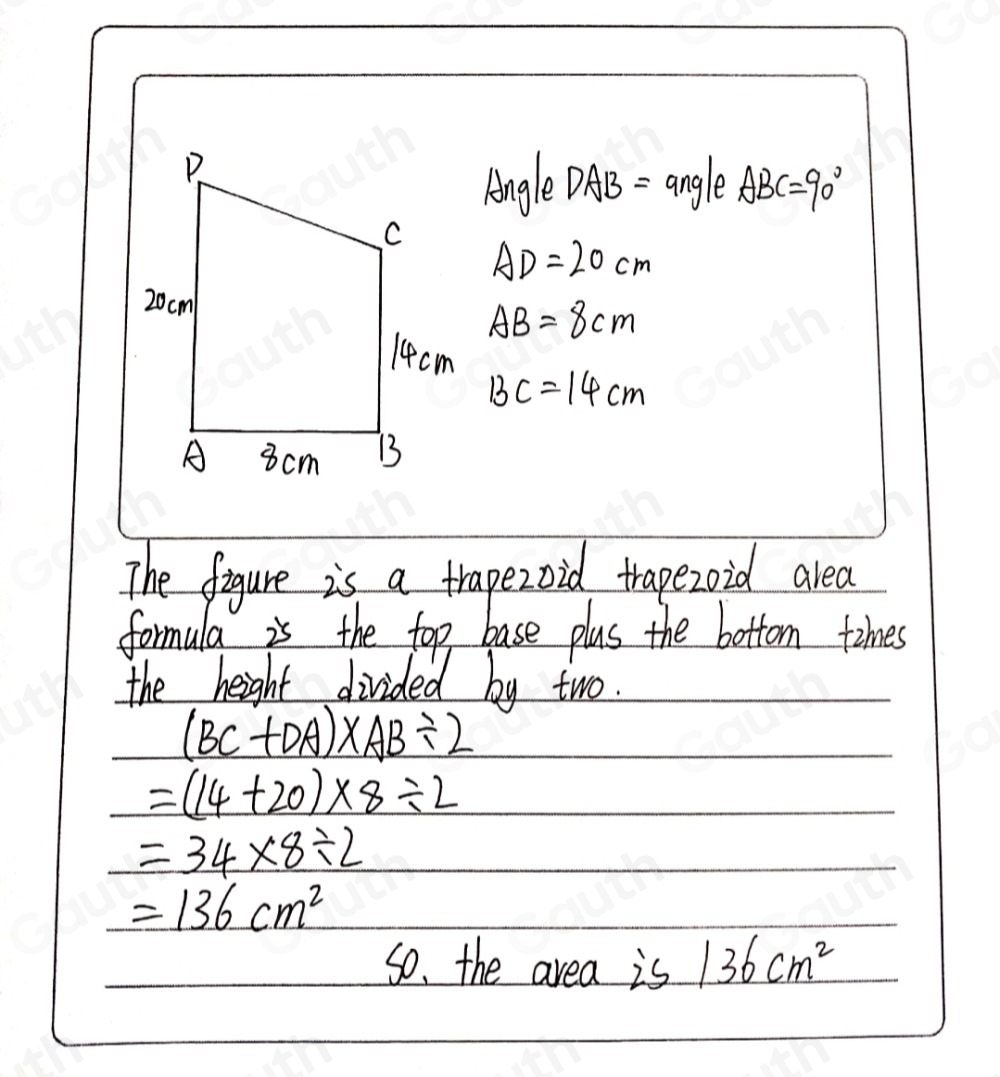 D
Angle DAB = angle ABC=90°
C
AD=20 cm
20cm
AB=8cm
14cm
BC=14cm
A 8cm B
The figure is a trapezoid trapezoid area
formula is the top base plus the bottom times
the height divided by two.
(BC+DA)×AB÷2
=(14+20)×8÷2
=34×8÷2
=136 cm²
So, the area is 136cm²
Gauth